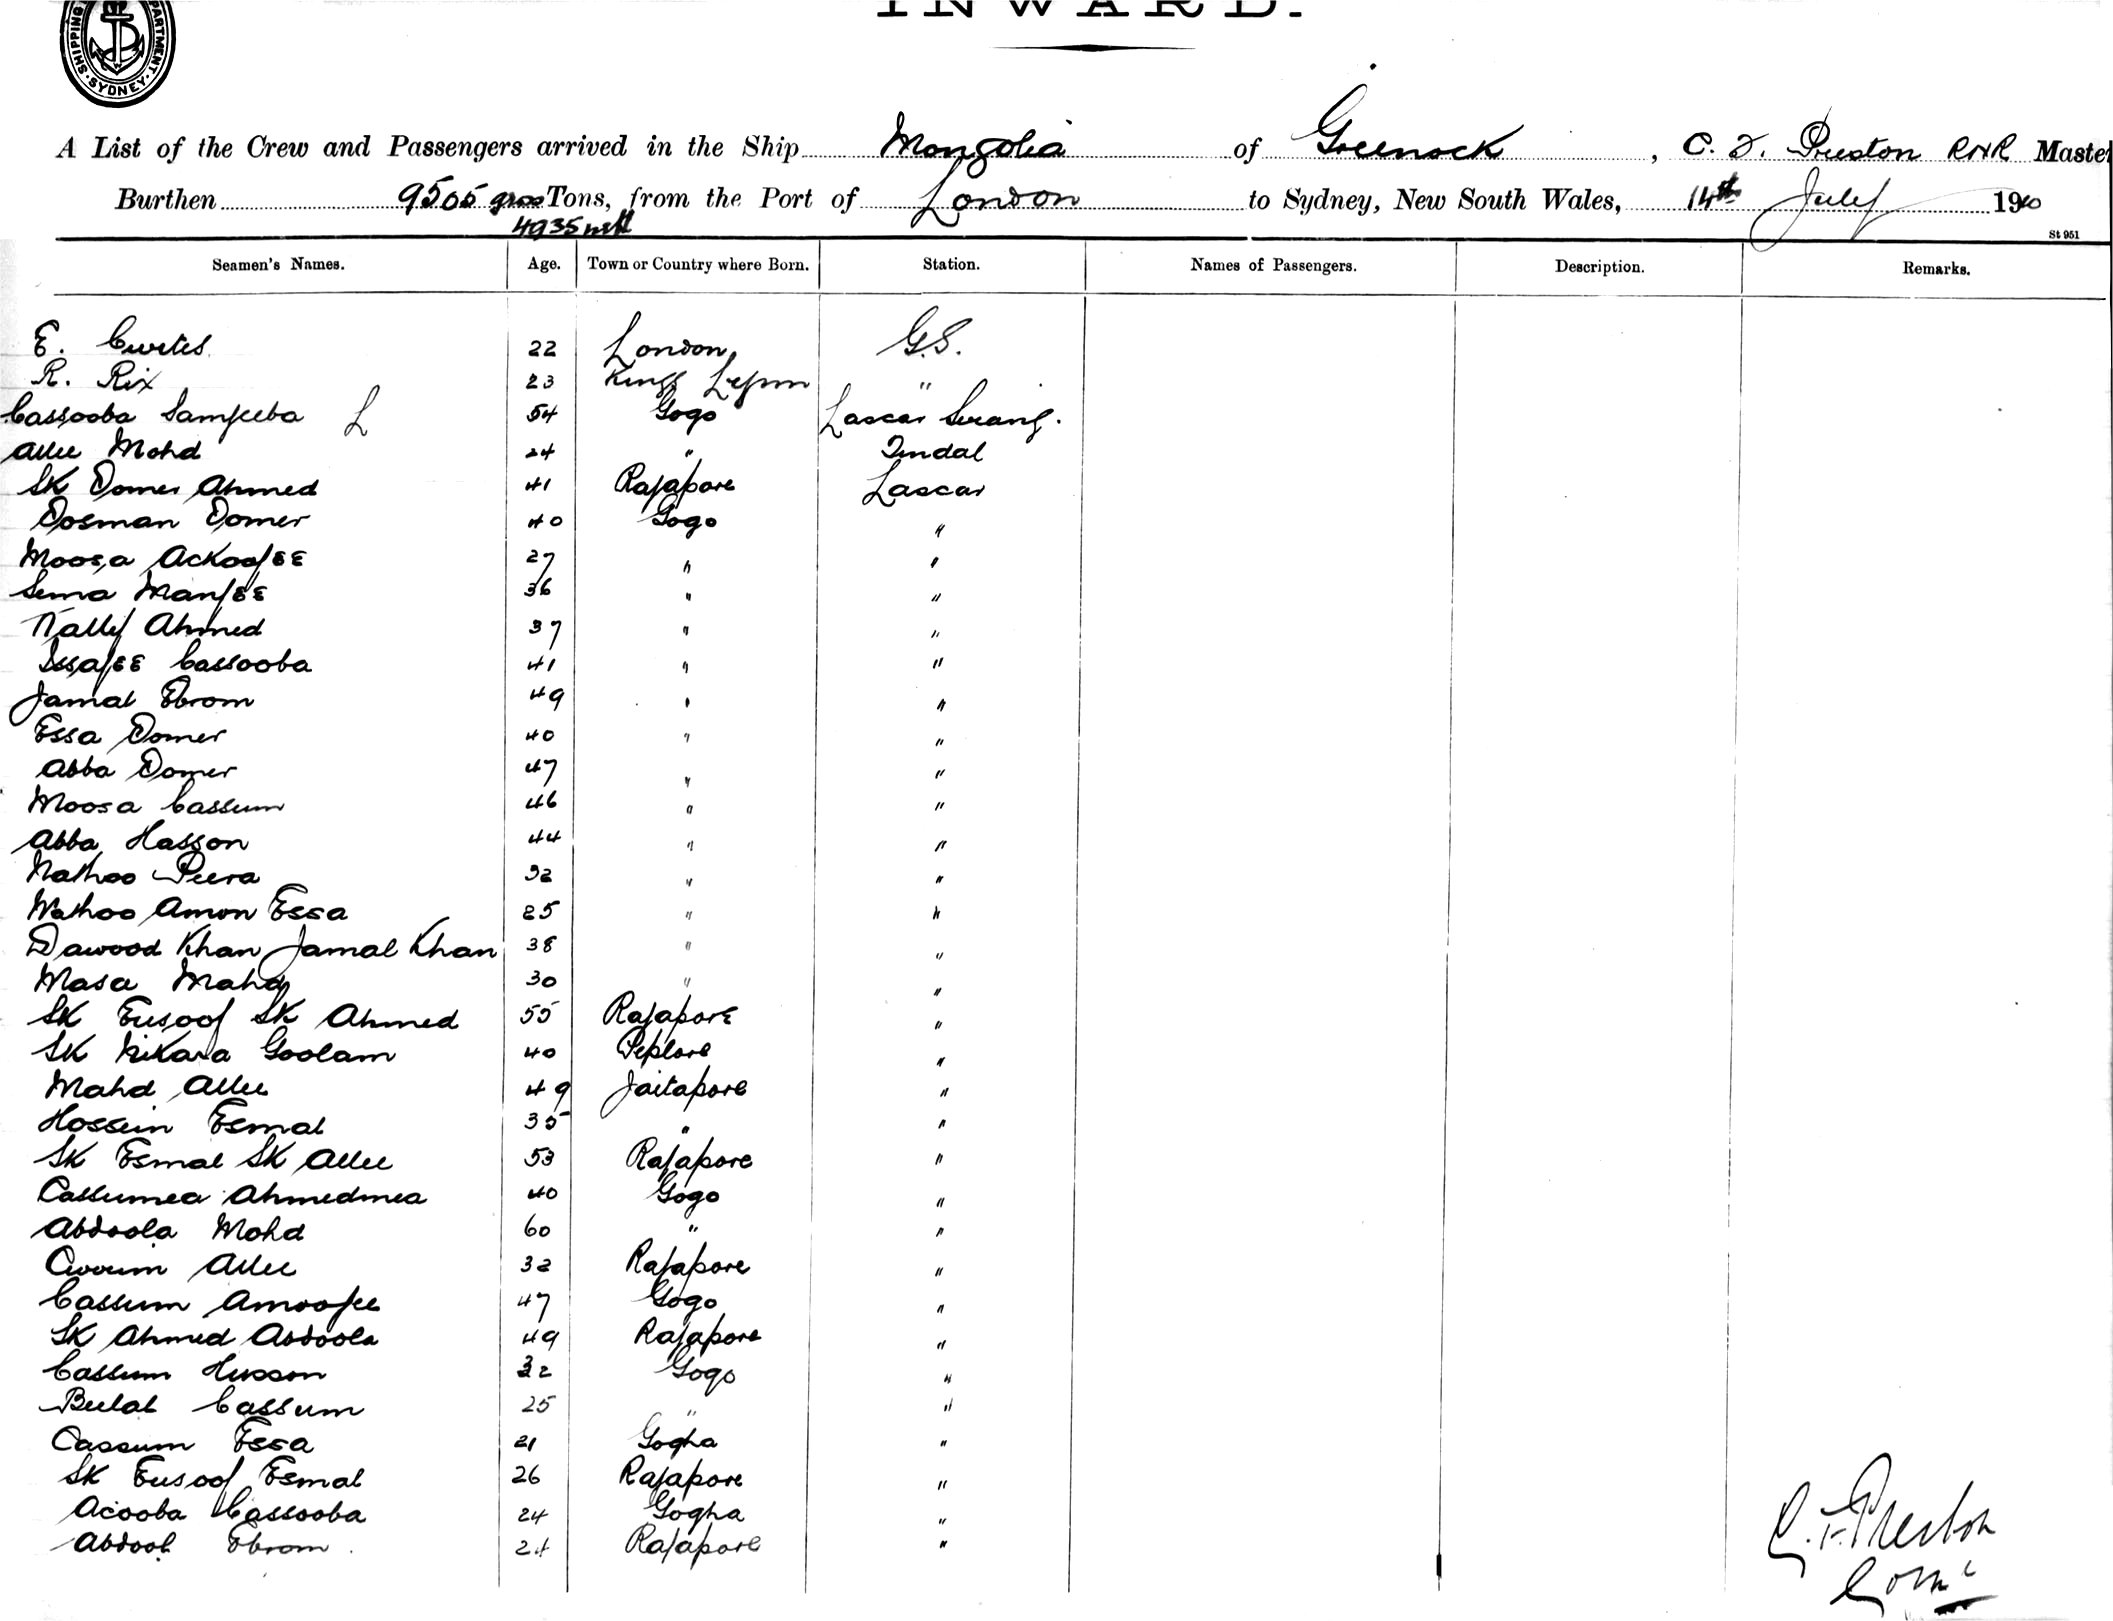 INWARD.
SHIPPING DEPARTMENT. SYDNEY
A List of the Crew and Passengers arrived in the Ship Mongolia of Greenock, C. F. Preston RNR Master
Burthen 9505 gross Tons, from the Port of London to Sydney, New South Wales, 14th July 1910
4935 nett
St 951
Seamen's Names. Age. Town or Country where Born. Station. Names of Passengers. Description. Remarks.
E. Curtis 22 London G.S.
R. Rix 23 Kings Lynn "
Cassooba Samjeeba L 54 Gogo Lascar Serang.
Allee Mohd 24 " Tindal
SK Oomer Ahmed 41 Rajapore Lascar
Oosman Oomer 40 Gogo "
Moosa Ackoojee 27 " "
Sema Manjee 36 " "
Nalley Ahmed 37 " "
Issajee Cassooba 41 " "
Jamal Ebrom 49 " "
Essa Oomer 40 " "
Abba Oomer 47 " "
Moosa Cassum 46 " "
Abba Hasson 44 " "
Nathoo Peera 32 " "
Nathoo Amon Essa 25 " "
Dawood Khan Jamal Khan 38 " "
Masa Mahd 30 " "
SK Eusoof SK Ahmed 55 Rajapore "
SK Nikara Goolam 40 Peplore "
Mahd Allee 49 Jaitapore "
Hossein Esmal 35 " "
SK Esmal SK Allee 53 Rajapore "
Cassumea Ahmedmea 40 Gogo "
Abdoola Mohd 60 " "
Allee 32 Rajapore "
Cassum Amoojee 47 Gogo "
SK Ahmed Abdoola 49 Rajapore "
Cassum Husson 32 Gogo "
Belal Cassum 25 " "
Cassum Essa 21 Gogha "
SK Eusoof Esmal 26 Rajapore "
Acooba Cassooba 24 Gogha "
Abdool Ebrom 24 Rajapore "
C. F. Preston
Comr